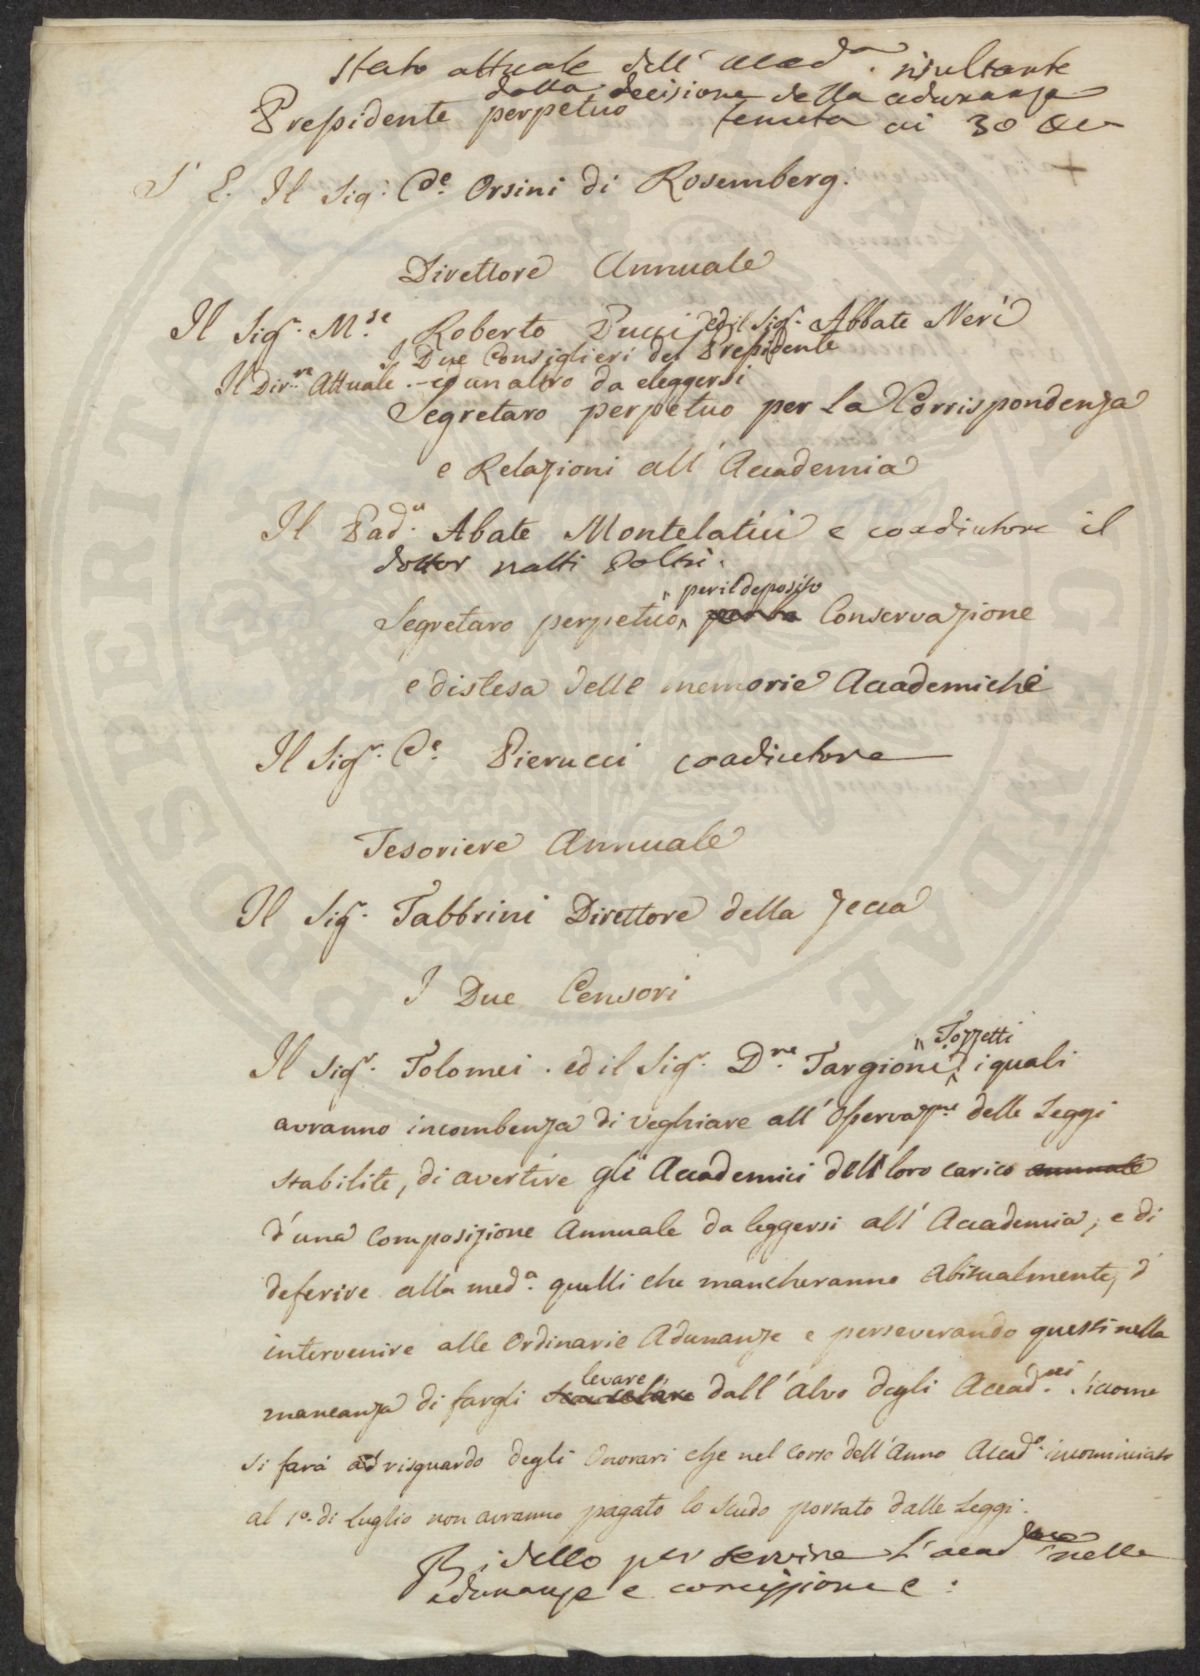 Stato attuale dell' Accad.a risultante
dalla decisione della adunanza
Presidente perpetuo tenuta ai 30
S. E. Il Sig.r C.e Orsini di Rosemberg.
Direttore Annuale
Il Sig.r M.se Roberto Pucci, ed il Sig.r Abbate Neri
I Due Consiglieri del Presidente
Il Dir.re Attuale. ed un altro da eleggersi
Segretaro perpetuo per la Corrispondenza
e Relazioni all' Accademia
Il Pad. Abate Montelatici e coadiutore il
dottor
Segretaro perpetuo per il deposito per la Conservazione
e distesa delle memorie Accademiche
Il Sig.r C.e Pierucci coadiutore
Tesoriere Annuale
Il Sig.r Fabbrini Direttore della Zecca
I Due Censori
Il Sig.r Tolomei. ed il Sig.r D.re Targioni Tozzetti i quali
avranno incombenza di veghiare all' Osservaz.ne delle Leggi
stabilite, di avertire gli Accademici del loro carico annuale
d'una Composizione Annuale da leggersi all' Accademia, e di
deferire alla med.a quelli che mancheranno Abitualmente, d'
intervenire alle Ordinarie Adunanze e perseverando questi nella
mancanza di fargli levare scancelare dall' Alvo degli Accad.ci siccome
si farà ad risguardo degli Onorari che nel Corso dell' Anno Accad.o incominciato
al 1.o di Luglio non avranno pagato lo Scudo portato dalle Leggi.
Bidello per servire l'acad nelle
adunanze e
PROSPERITATI PUBLICAE AUGENDAE